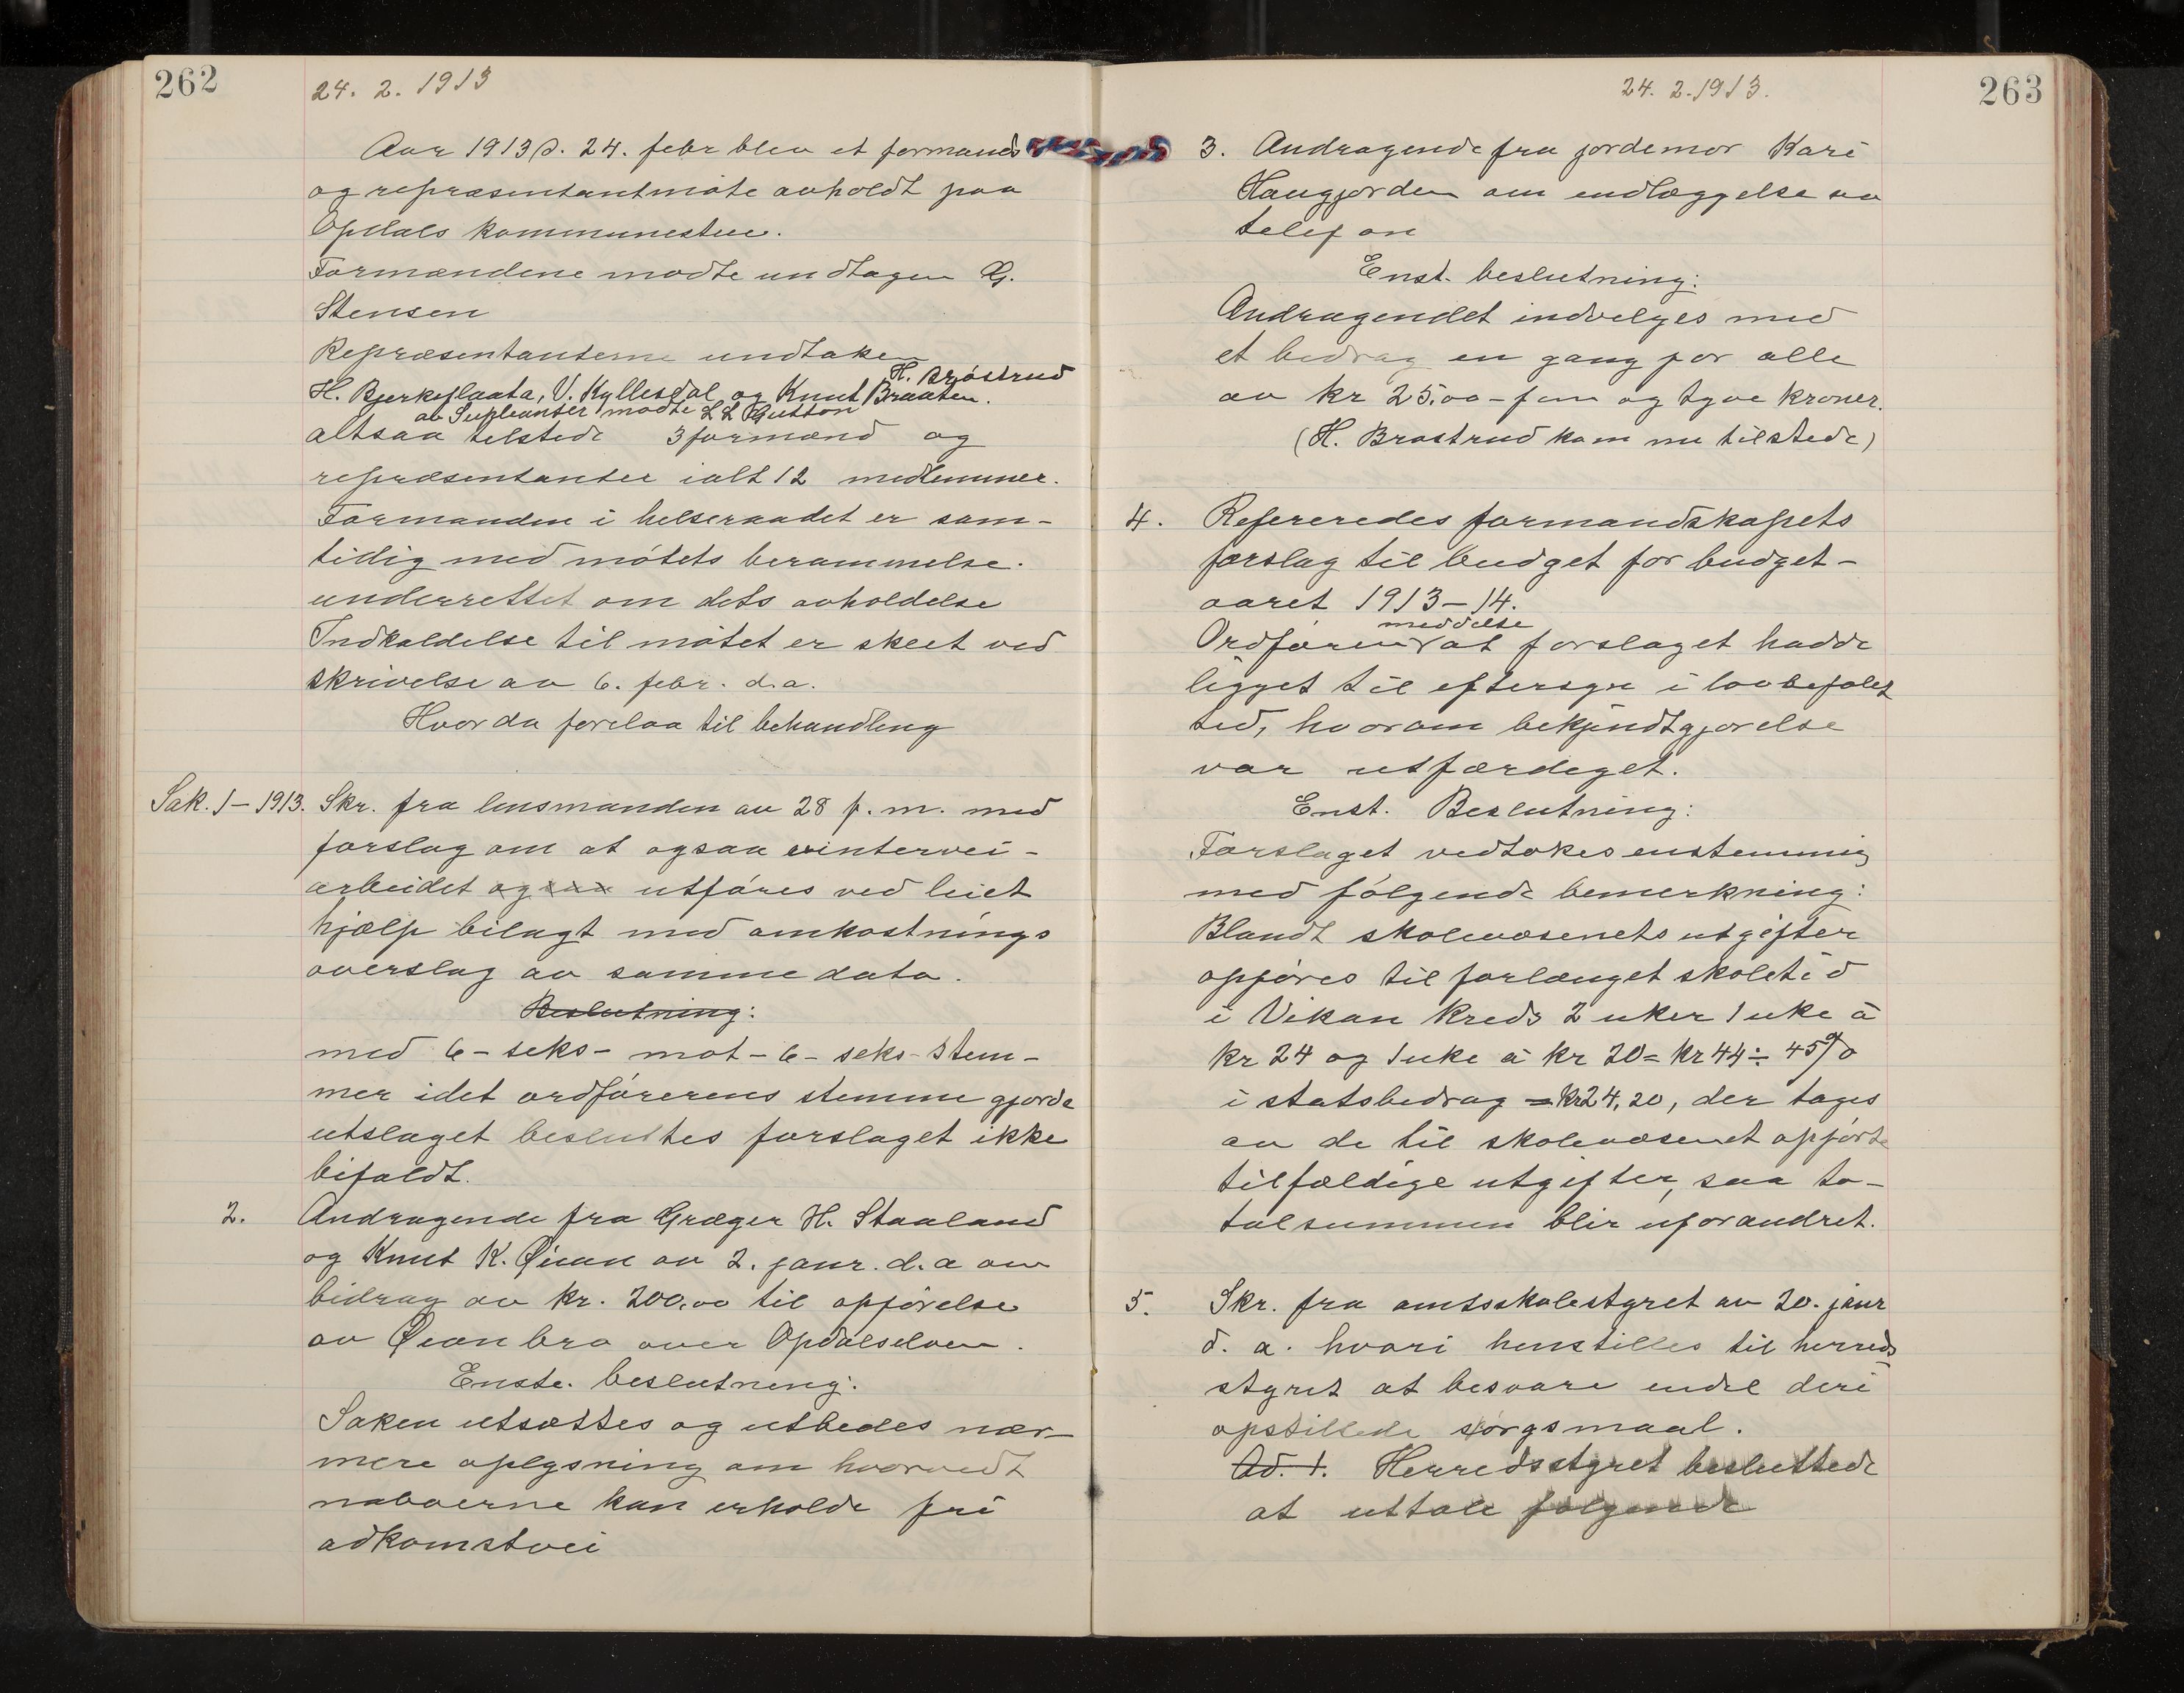 262
24. 2. 1913
Aar 1913 d. 24. febr blev et formands
og repræsentantmøte avholdt paa
Opdals kommunestue.
Formændene mødte undtagen G.
Stensen
Repræsentanterne undtaken
H. Brøstrud
H. Bjerkeflaata, V. Kyllesdal og Knut Braaten.
av Supleanter mødte L L Gutton
altsaa tilstede 3 formænd og
repræsentanter ialt 12 medlemmer.
Formanden i helseraadet er sam-
tidig med møtets berammelse.
underrettet om dets avholdelse
Indkaldelse til møtet er skeet ved
skrivelse av 6. febr. d.a.
Hvor da forelaa til behandling
Sak. 1 - 1913. Skr. fra lensmanden av 28 f. m. med
forslag om at ogsaa vintervei-
arbeidet ogsaa utføres ved leiet
hjælp bilagt med omkostnings
overslag av samme dato.
Beslutning:
med 6 - seks - mot - 6 - seks - stem-
mer idet ordførerens stemme gjorde
utslaget besluttes forslaget ikke
bifaldt.
2. Andragende fra Græger H. Staaland
og Knut K. Øian av 2. janr. d.a om
bidrag av kr. 200,00 til opførelse
av Øian bro over Opdalselven.
Enste. beslutning:
Saken utsættes og utbedes nær-
mere oplysning om hvorvidt
naboerne kan erholde fri
adkomstvei
24. 2. 1913.
263
3. Andragende fra jordemor Kari
Haugjorden om indlæggelse av
telefon
Enst. beslutning:
Andragendet indvilges med
et bidrag en gang for alle
av kr 25.00 - fem og tyve kroner.
(H. Brøstrud kom nu tilstede)
4. Refereredes formandskapets
forslag til budget for budget-
aaret 1913-14.
meddelte
Ordføreren at forslaget hadde
ligget til eftersyn i lovbefalet
tid, hvorom bekjendtgjørelse
var utfærdiget.
Enst. Beslutning:
Forslaget vedtokes enstemmig
med følgende bemerkning:
Blandt skolevæsenets utgifter
opføres til forlænget skoletid
i Vikan kreds 2 uker 1 uke à
kr 24 og 1 uke à kr 20 = kr 44 ÷ 45%
i statsbidrag = kr 24,20, der tages
av de til skolevæsenet opførte
tilfældige utgifter, saa to-
talsummen blir uforandret.
5. Skr. fra amtsskolestyret av 20. janr
d. a. hvori henstilles til herreds-
styret at besvare endel deri
opstillede spørgsmaal.
Ad. 1. Herredsstyret besluttede
at uttale følgende